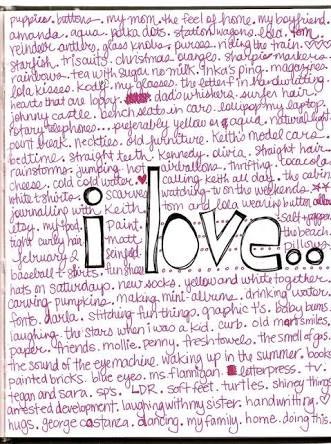 puppies. buttons. my mom. the feel of home. my boyfriend.
amanda. aqua polka dots. stationwagons. lola. tom
reindeer antlers. glass knobs. purses. riding the train.
starfish. trisauts. christmas. oranges. sharpie markers.
rainbows. tea with sugar no milk. inka's ping. magazines
lola kisses. kodi. my glasses. the letter f in handwriting
hearts that are loopy. dad's whiskers. surfer hair
johnny castle. bench seats in cars. lollipop. my laptop.
rotary telephones... preferably yellow or aqua. natural light
point break. neckties. old furniture. keith's model care
bedtime. straight teeth. kennedy. olivia. straight hair.
rainstorms. jumping hot airballons. thrifting. cocacola
cheese. cold cold water. calling beth all day. the cabin
white t-shirts. scarves watching tv on the weekends
journalling with keith tom and lola wearing button
etsy. my food. paint. salt + pepper
tight curly hair. matt the beach.
february 2 pillows.
i love...
baseball t-shirts. funshine
hats on saturdays. new socks. yellow and white together.
carving pumpkins. making mini-albums. drinking water.
fonts. darla. stitching fun things. graphic t's. baby bums.
laughing. the stars when i was a kid. curb. old man smiles.
paper. friends. mollie. penny. fresh towels. the smell of gas.
the sound of the eye machine. waking up in the summer. book
painted bricks. blue eyes. ms. flannigan. letterpress. tv.
tegan and sara. sps. LDR. soft feet. turtles. shiny things
arrested development. laughing with my sister. handwriting.
hugs. george costanza. dancing. my family. home. doing this